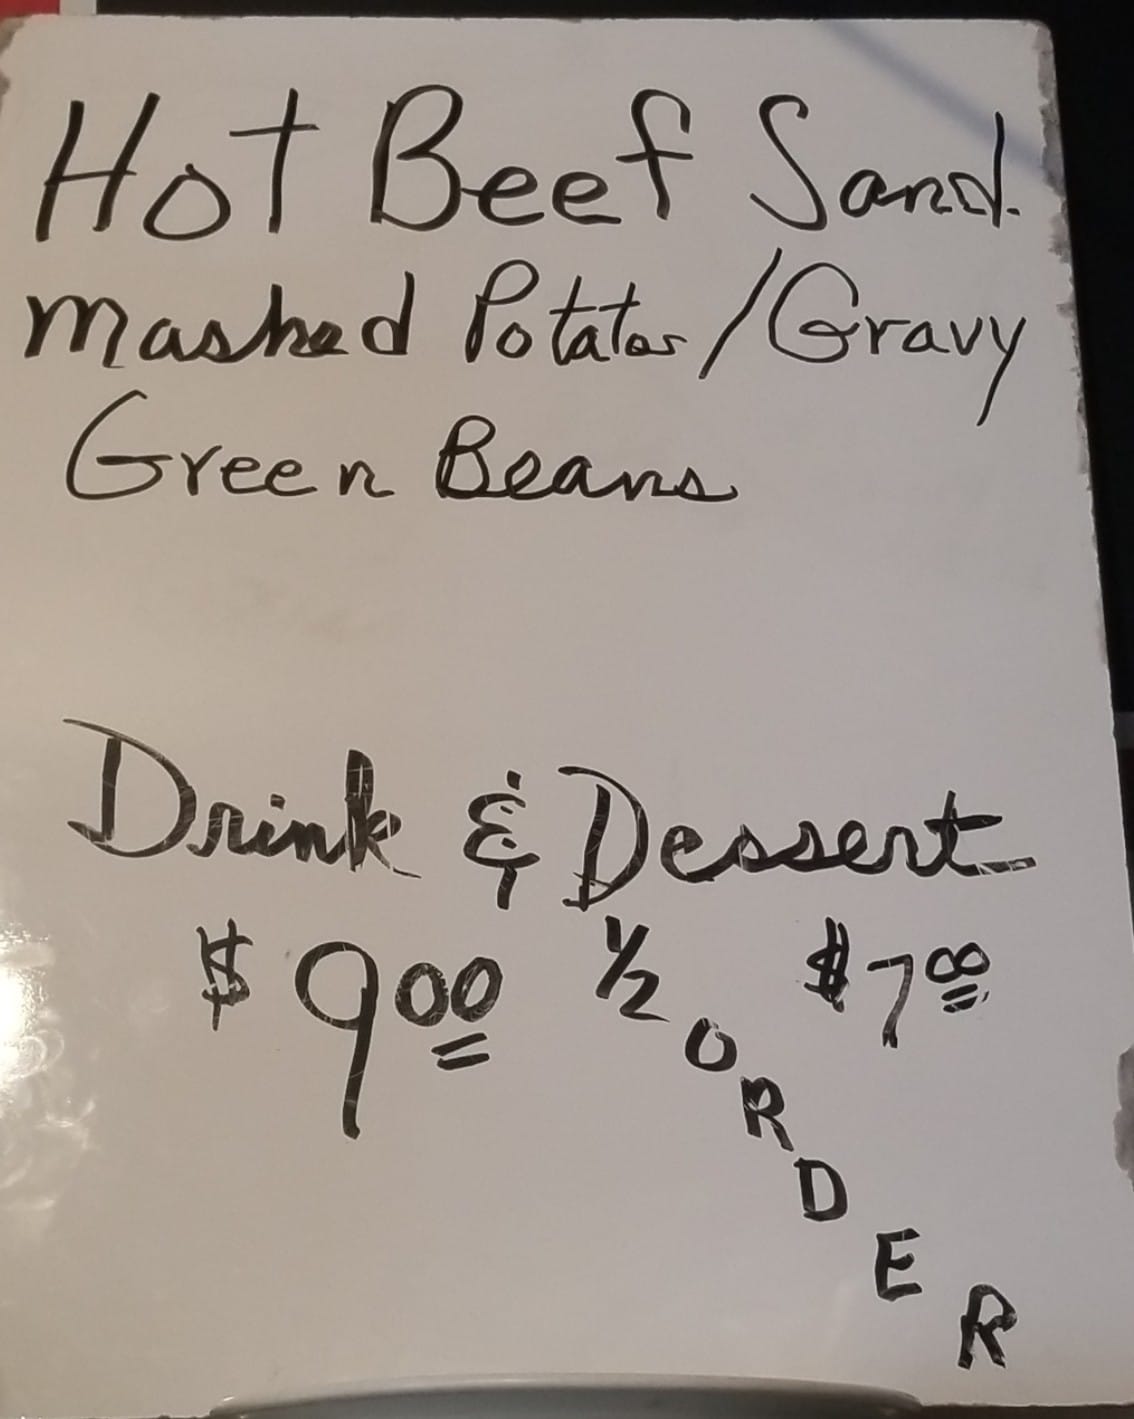 Hot Beef Sand.
Mashed Potatos/Gravy
Green Beans
Drink & Dessert
$9.00 1/2 ORDER $7.00